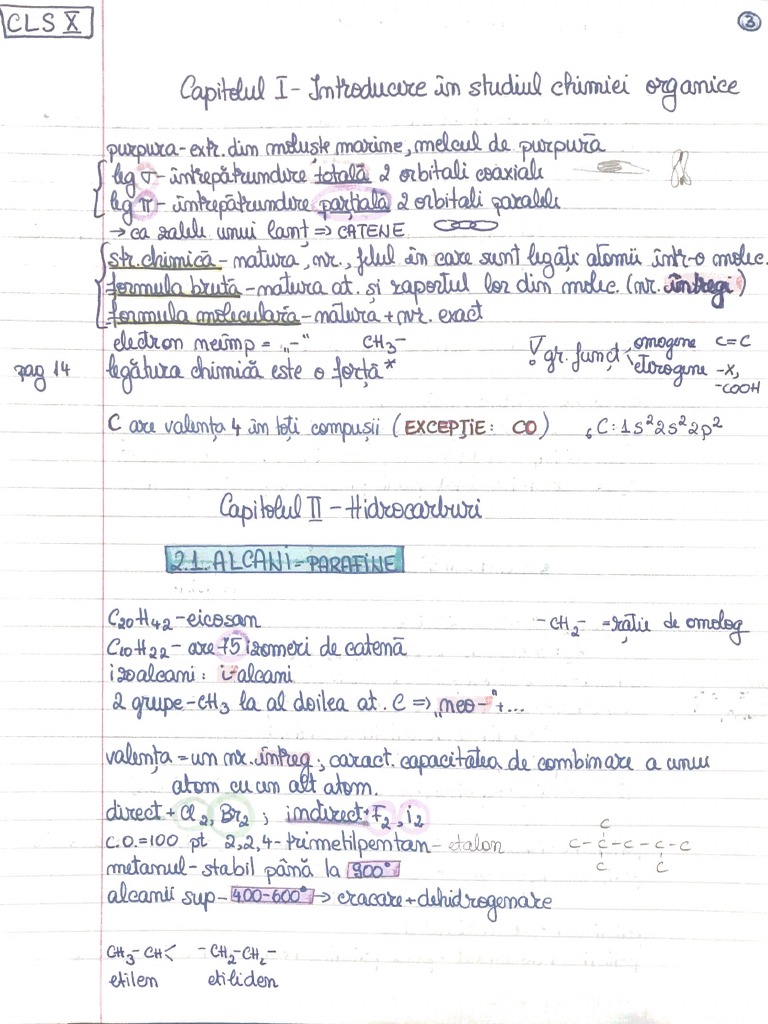 CLS X
3
Capitolul I - Introducere în studiul chimiei organice
purpura - extr. din moluște marine, melcul de purpură
leg σ - întrepătrundere totală 2 orbitali coaxiali
leg π - întrepătrundere parțială 2 orbitali paraleli
→ ca zalele unui lanț => CATENE
str. chimică - natura, nr., felul în care sunt legați atomii într-o molec.
formula brută - natura at. și raportul lor din molec. (nr. întregi)
formula moleculară - natura + nr. exact
electron neîmp = „-" CH3-
! gr. funcț < omogene C=C
eterogene -X, -COOH
pag 14 legătura chimică este o forță*
C are valența 4 în toți compușii (EXCEPȚIE: CO) 6C: 1s² 2s² 2p²
Capitolul II - Hidrocarburi
2.1. ALCANI = PARAFINE
C20H42 - eicosan -CH2- = rație de omolog
C10H22 - are 75 izomeri de catenă
izoalcani: i-alcani
2 grupe -CH3 la al doilea at. C => „neo-" + ...
valența = un nr. întreg; caract. capacitatea de combinare a unui
atom cu un alt atom.
direct + Cl2, Br2; indirect: F2, i2
c.o. = 100 pt 2,2,4-trimetilpentan - etalon
C
C-C-C-C-C
C C
metanul - stabil până la 900°
alcanii sup - 400-600° → cracare + dehidrogenare
CH3-CH< -CH2-CH2-
etilen etiliden